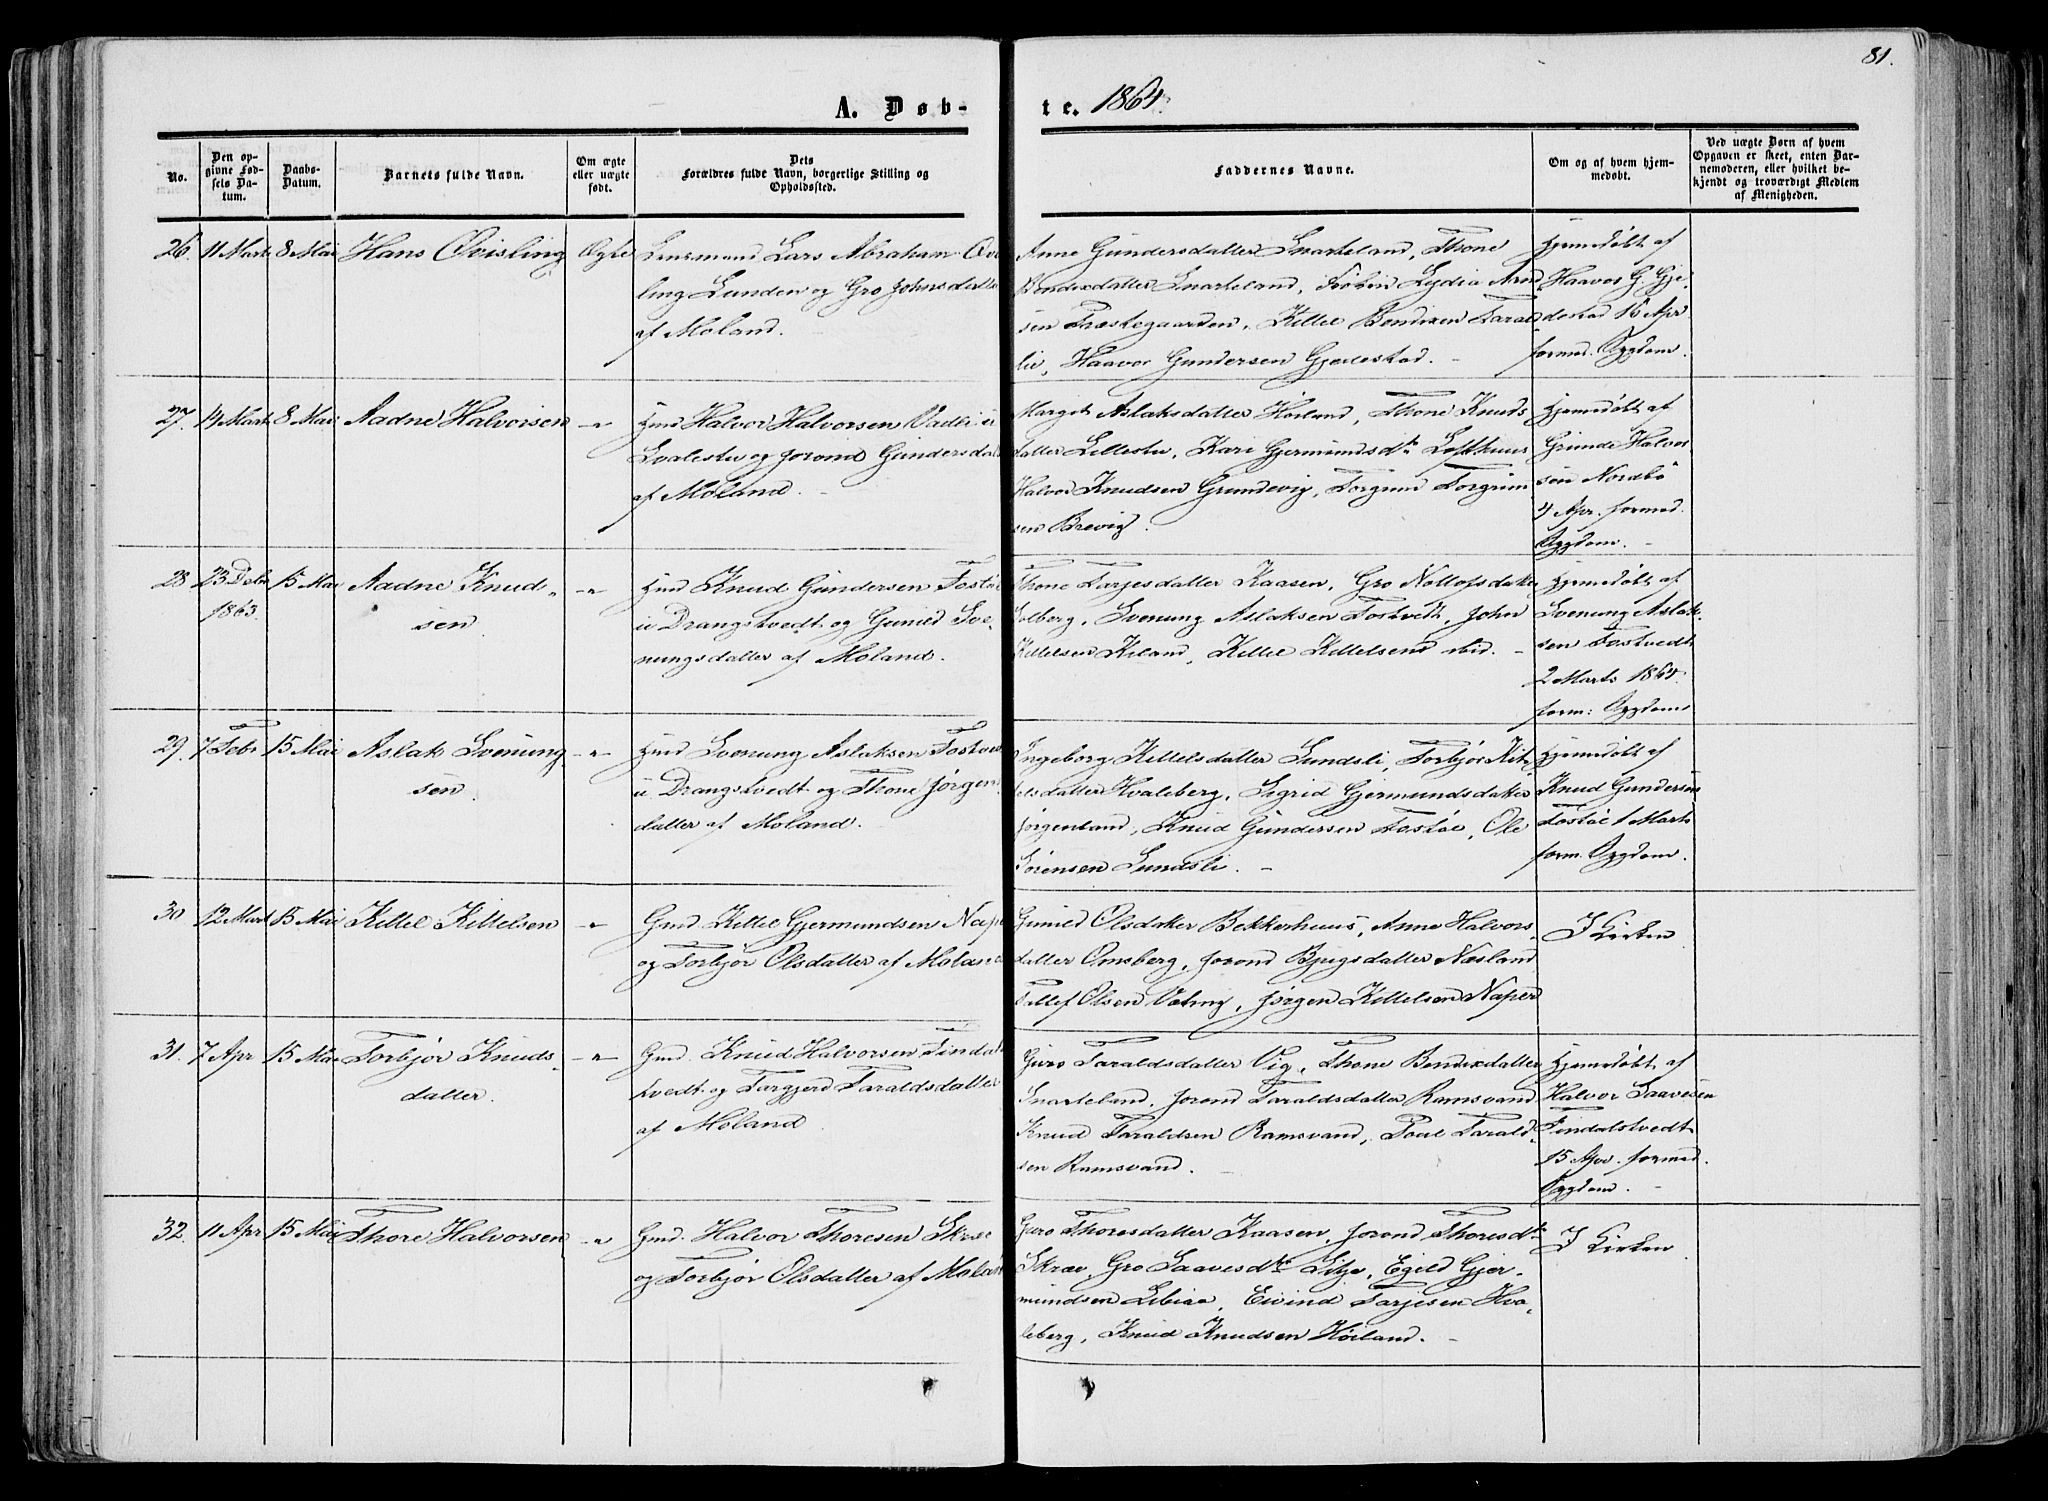 81.
A. Døb-
te. 1864.
No.
Den op-
givne Fød-
sels Da-
tum.
Daabs-
Datum.
Barnets fulde Navn.
Om ægte
eller uægte
født.
Dets
Forældres fulde Navn, borgerlige Stilling og
Opholdssted.
Faddernes Navne.
Om og af hvem hjem-
medøbt.
Ved uægte Børn af hvem
Opgaven er skeet, enten Bar-
nemoderen, eller hvilket be-
kjendt og troværdigt Medlem
af Menigheden.
26. 11 Marts 8 Mai Hans Qvisling Ægte
Lensmand Lars Abraham Qvis
ling Lunden og Gro Johnsdatter
af Moland.
Anne Gundersdatter Snarteland, Thone
Bendixdatter Snarteland, Frøken Lydia Arn
sen Præstegaarden, Kittel Bendixen Tarald
lie, Haavor Gundersen Gjedestad. -
Hjemedøbt af
Haavor G. Gje-
destad 16 Apr
formed. Sygdom.
27. 14 Marts 8 Mai Aadne Halvorsen -"-
Hmd Halvor Halvorsen Vadli u
Svalestu og Jorond Gundersdat
af Moland. -
Marget Aslaksdatter Høiland, Thone Knuds
datter Lillestu, Kari Gjermundsdtr Lofthuus
Halvor Knudsen Grundevig, Torgrim Torgrim
sen Brevig.
Hjemedøbt af
Grunde Halvor
sen Nordbø
4 Apr. formed.
Sygdom. -
28 23 Debr 15 Mai Aadne Knud- -"-
1863.
sen.
Hmd Knud Gundersen Tostøe
u Drangstvedt og Gunild Sve-
nungsdatter af Moland.
Thone Terjesdatter Kaasen, Gro Nottofsdatter
Solberg, Svenung Aslaksen Tostvedt, John
Kittelsen Kiland, Kittel Kittelsen ibid. -
Hjemedøbt af
Svenung Aslak-
sen Tostvedt
2 Marts 1864.
form: Sygdom
29. 7 Febr 15 Mai Aslak Svenung -"-
sen.
Hmd Svenung Aslaksen Tostved
u Drangstvedt og Thone Jørgen
datter af Moland.
Ingeborg Kittelsdatter Sundsli, Torbjør Kit
elsdatter Hvaleberg, Sigrid Gjermundsdatter
Jørgenland, Knud Gundersen Tostøe, Ole
Sørensen Sundsli. -
Hjemedøbt af
Knud Gundersen
Tostøe 1 Marts
form. Sygdom.
30 12 Marts 15 Mai Kittel Kittelsen -"-
Gmd Kittel Gjermundsen Nape
og Torbjør Olsdatter af Moland
Gunild Olsdatter Bekkerhuus, Anne Halvors-
datter Omsberg, Jorond Bjugsdatter Næsland
Tellef Olsen Vehus, Jørgen Kittelsen Naper
I Kirken
31. 7 Apr 15 Mai Torbjør Knuds- -"-
datter.
Gmd. Knud Halvorsen Findals
tvedt og Targjerd Taraldsdatter
af Moland
Guro Taraldsdatter Vig, Thone Bendixdatter
Snarteland, Jorond Taraldsdatter Ramsvand
Knud Taraldsen Ramsvand, Poul Tarald-
sen Ramsvand. -
Hjemedøbt af
Halvor Saavesen
Findalstvedt
15 Apr. formed.
Sygdom. -
32. 11 Apr 15 Mai Thore Halvorsen -"-
Gmd. Halvor Thoresen Skree
og Torbjør Olsdatter af Moland
Guro Thoresdatter Kaasen, Jorond Thoresdtr
Skræ, Gro Saavesdtr Litje, Egild Gjer-
mundsen Libiaa, Eivind Tarjesen Hva-
leberg, Knud Knudsen Høiland. -
I Kirken